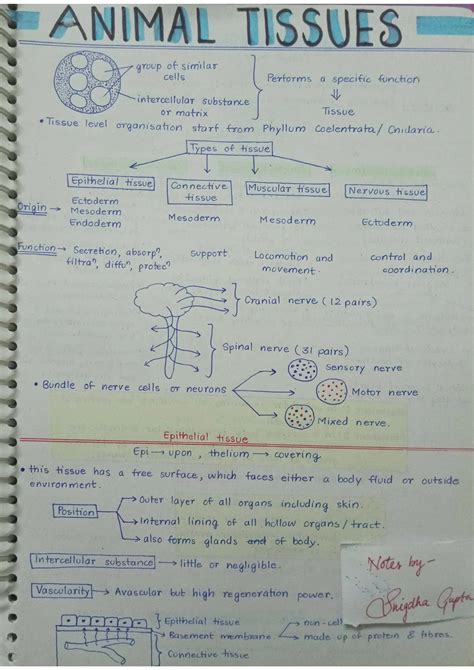 ANIMAL TISSUES
group of similar
cells
intercellular substance
or matrix
Performs a specific function
Tissue
• Tissue level organisation start from Phyllum Coelentrata/ Cnidaria.
Types of tissue
Epithelial tissue Connective tissue Muscular tissue Nervous tissue
Origin → Ectoderm Mesoderm Endoderm Mesoderm Mesoderm Ectoderm.
Function → Secretion, absorpⁿ, support. Locomotion and control and
filtraⁿ, diffuⁿ, protecⁿ movement. coordination.
Cranial nerve (12 pairs)
Spinal nerve (31 pairs)
Sensory nerve
• Bundle of nerve cells or neurons Motor nerve
Mixed nerve.
Epithelial tissue
Epi → upon , thelium → covering.
• this tissue has a free surface, which faces either a body fluid or outside
environment.
Position → Outer layer of all organs including skin.
→ Internal lining of all hollow organs / tract.
→ also forms glands of body.
Intercellular substance → little or negligible.
Vascularity → Avascular but high regeneration power.
Notes by -
Snigdha Gupta
Epithelial tissue
Basement membrane → non-cell
→ made up of protein & fibres.
Connective tissue